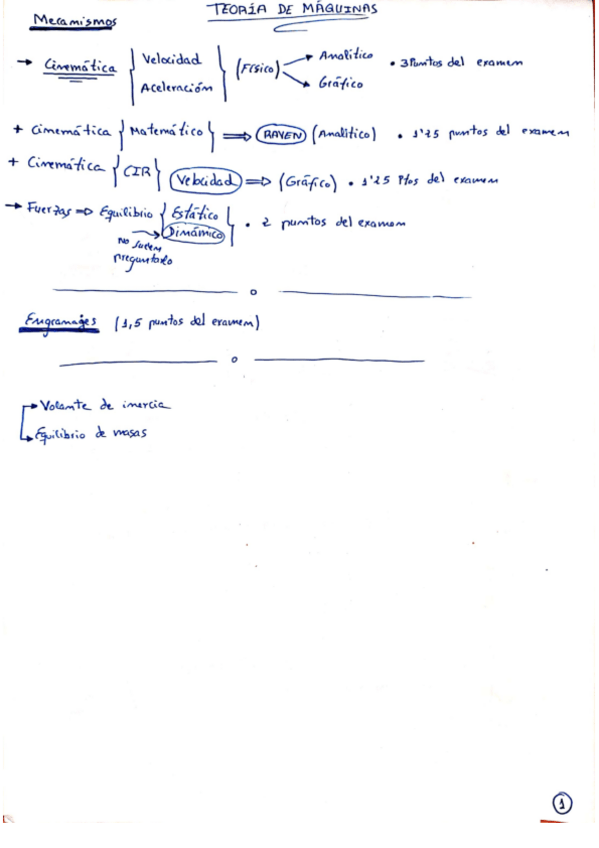 TEORÍA DE MÁQUINAS
Mecanismos
→ Cinemática { Velocidad Aceleración } (Físico) → Analítico → Gráfico • 3 Puntos del examen
+ Cinemática { Matemático } ⇒ RAVEN (Analítico) • 1'25 puntos del examen
+ Cinemática { CIR } Velocidad ⇒ (Gráfico) • 1'25 Ptos del examen
→ Fuerzas ⇒ Equilibrio { Estático Dinámico } • 2 puntos del examen
No suelen
preguntarlo
Engranajes (1,5 puntos del examen)
→ Volante de inercia
→ Equilibrio de masas
1